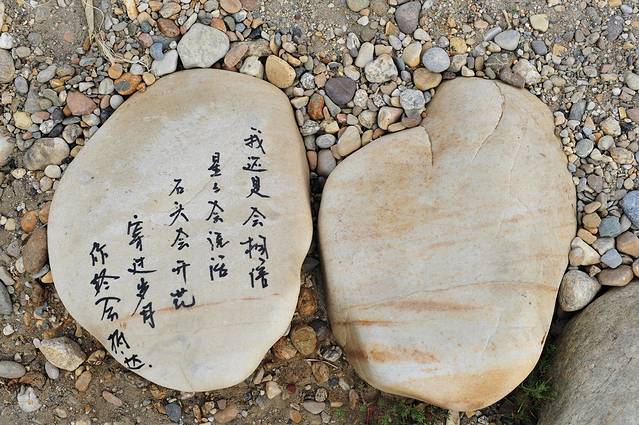 我还是会相信
星々会说话
石头会开花
穿过岁月
你终会抵达